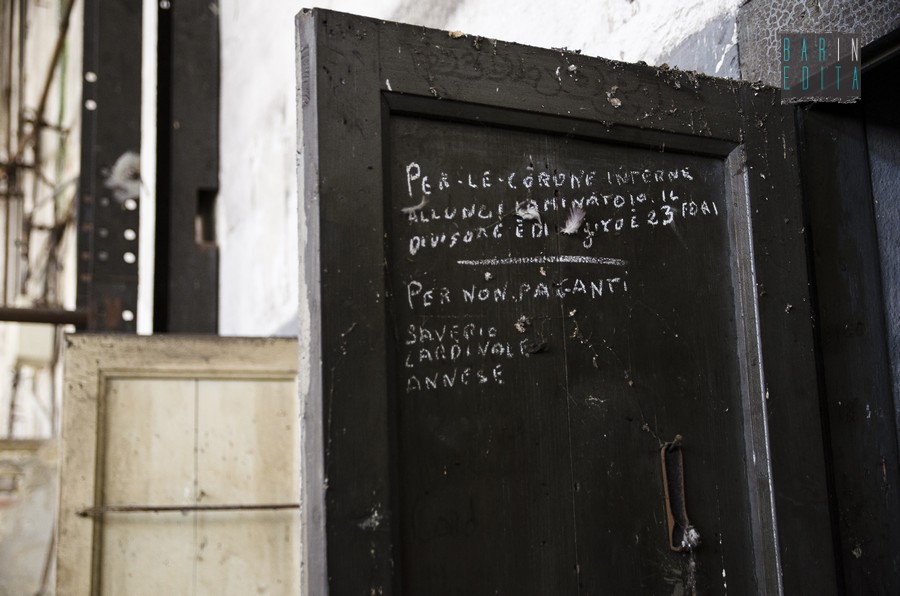 BARIN
EDITA
PER-LE-CORONE INTERNE
ALLUNGI LAMINATOIO. IL
DIVISORE È DI GIRO E 23 FORI
PER NON PAGANTI
SAVERIO
CARDINALE
ANNESE